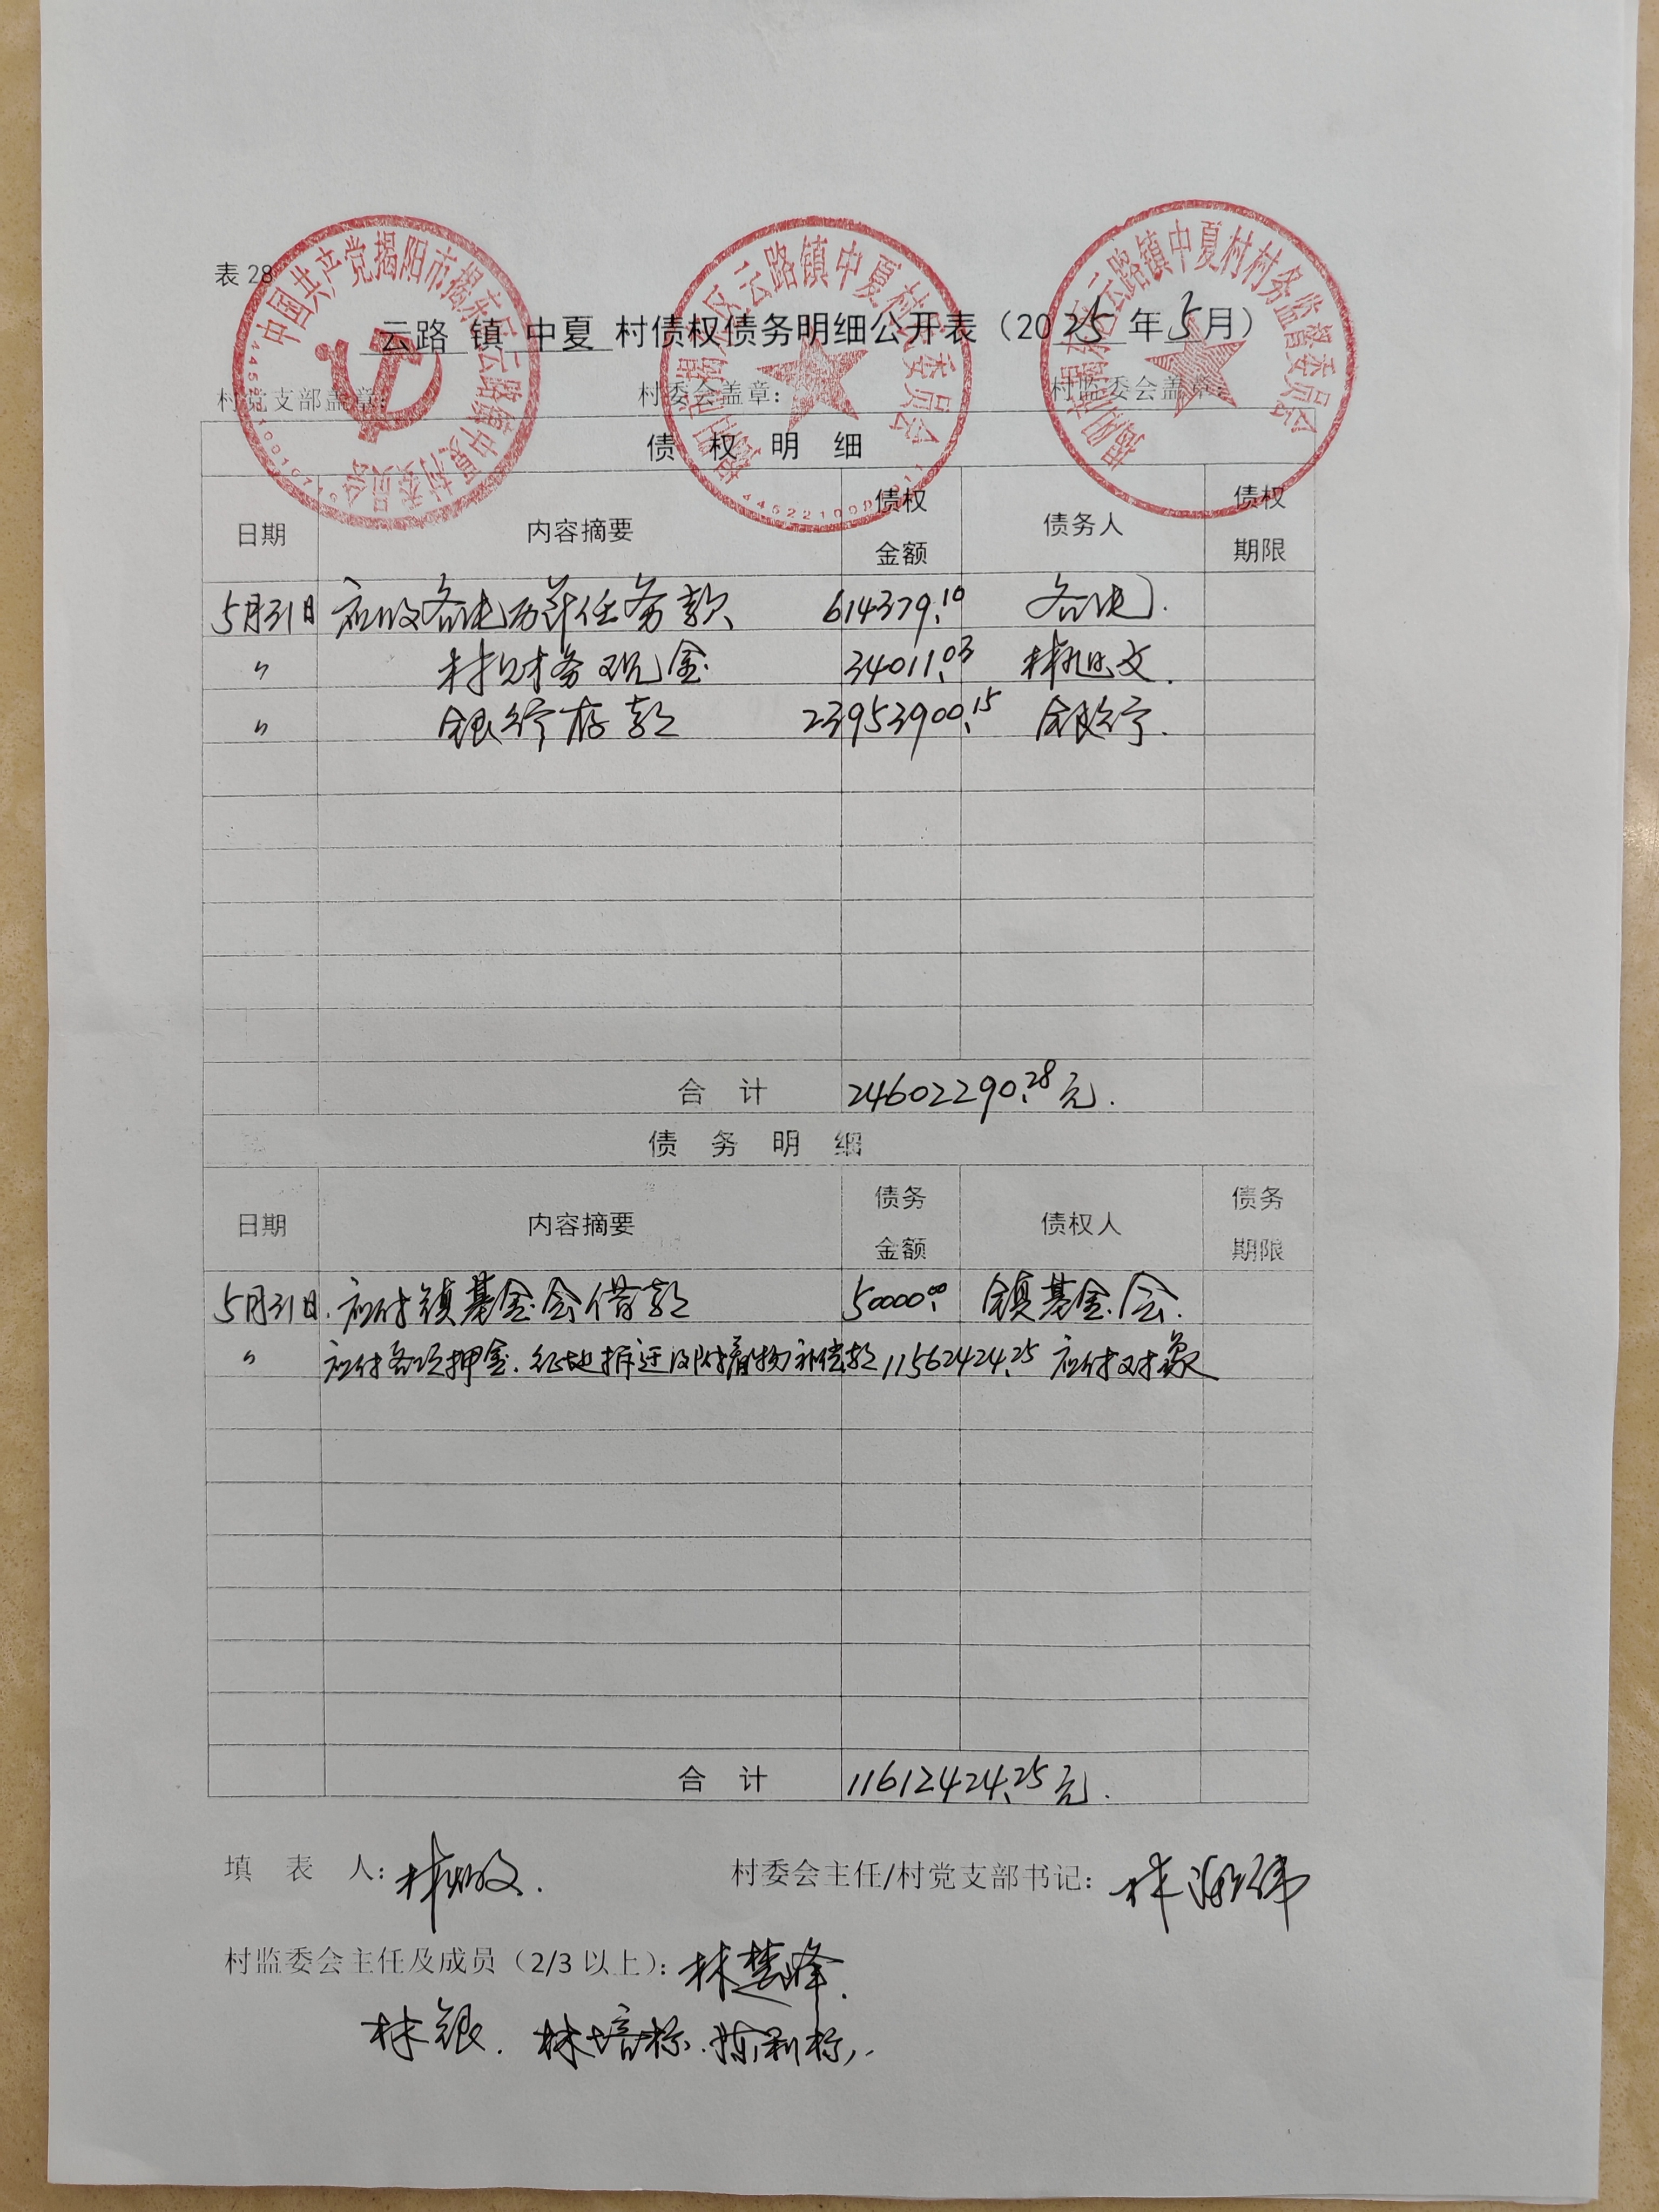 表 28
云路 镇 中夏 村债权债务明细公开表（2025 年 5月）
中国共产党揭阳市揭东区云路镇中夏村委员会
云路镇中夏村 委员会
云路镇中夏村村务监督委员会
村党支部盖章： 村委会盖章： 村监委会盖章：
债 权 明 细
日期 内容摘要 债权金额 债务人 债权期限
5月31日 应收各户历年任务款 614379.10
〃 村财务现金 34011.03 林旭文.
〃 银行存款 23953900.15 银行.
合 计 24602290.28元.
债 务 明 细
日期 内容摘要 债务金额 债权人 债务期限
5月31日. 应付镇基金会借款 50000.00 镇基金会.
〃 应付各项押金.征地拆迁及附着物补偿款 11562424.25 应付对象
合 计 11612424.25元.
填 表 人： 林
村委会主任/村党支部书记： 林
村监委会主任及成员（2/3 以上）：林楚峰.
林银. 林培标.